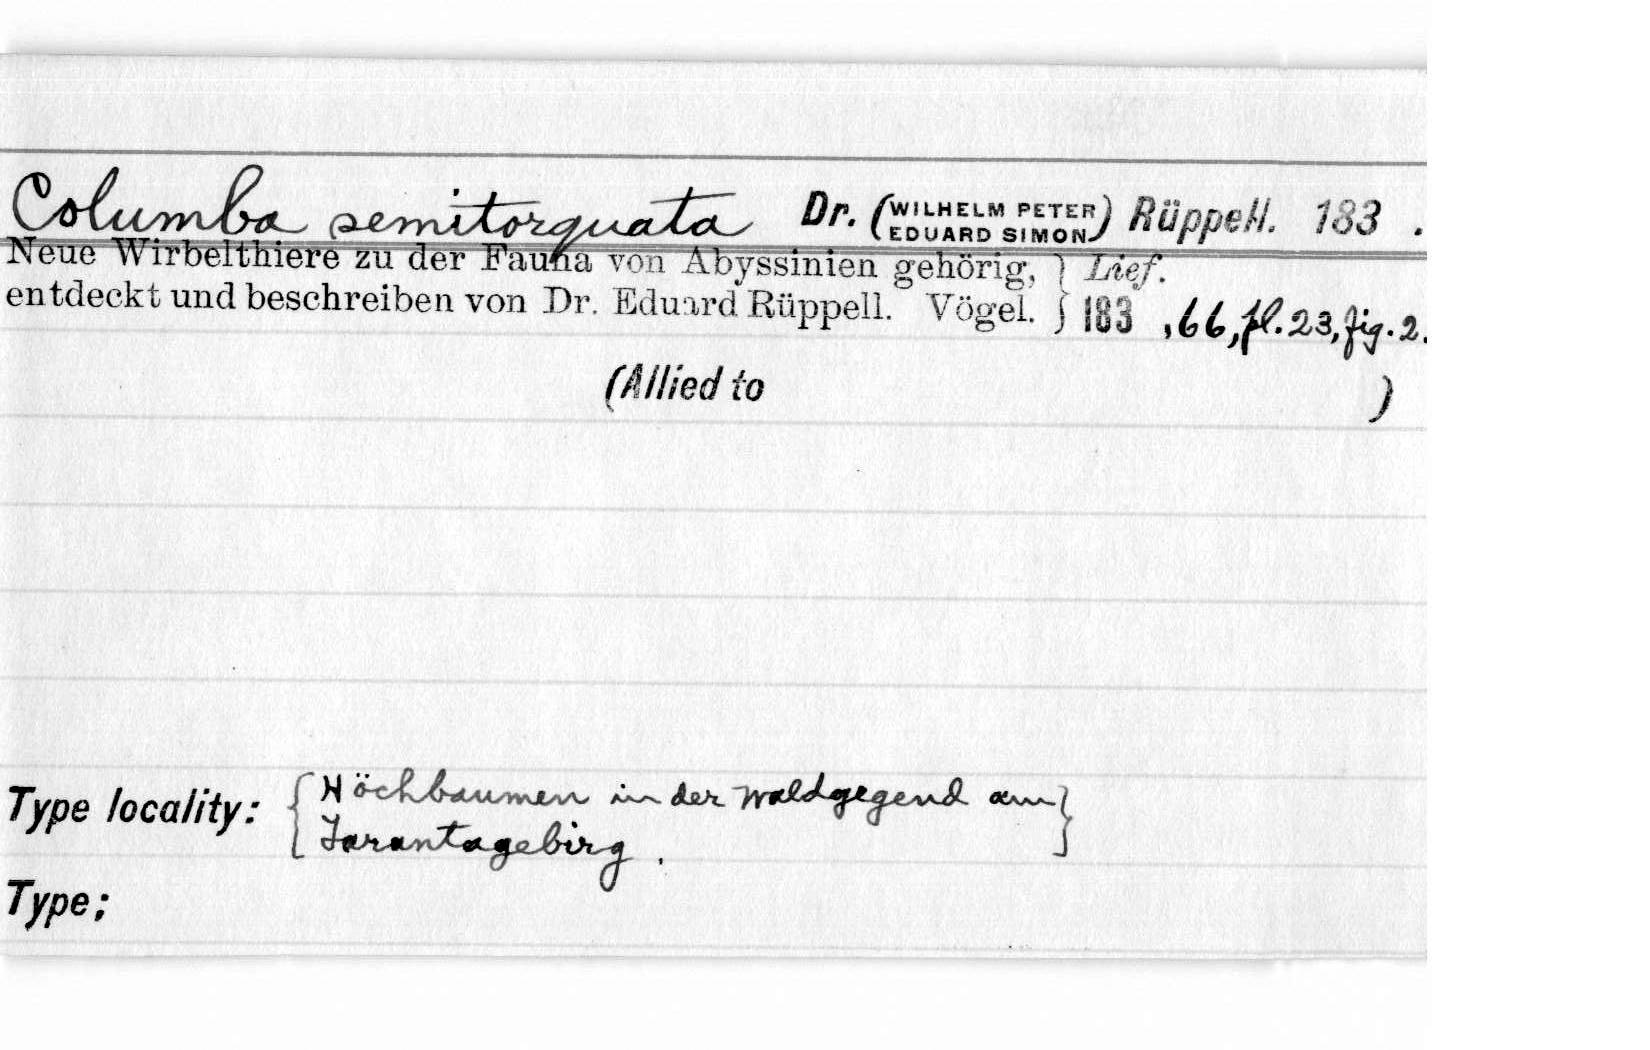 Columba semitorquata Dr. (WILHELM PETER EDUARD SIMON) Rüppell. 183 .
Neue Wirbelthiere zu der Fauna von Abyssinien gehörig, } Lief.
entdeckt und beschreiben von Dr. Eduard Rüppell. Vögel. } 183 , 66, pl. 23, fig. 2.
(Allied to )
Type locality: { Höchbaumen in der Waldgegend am
Tarantagebirg . }
Type;